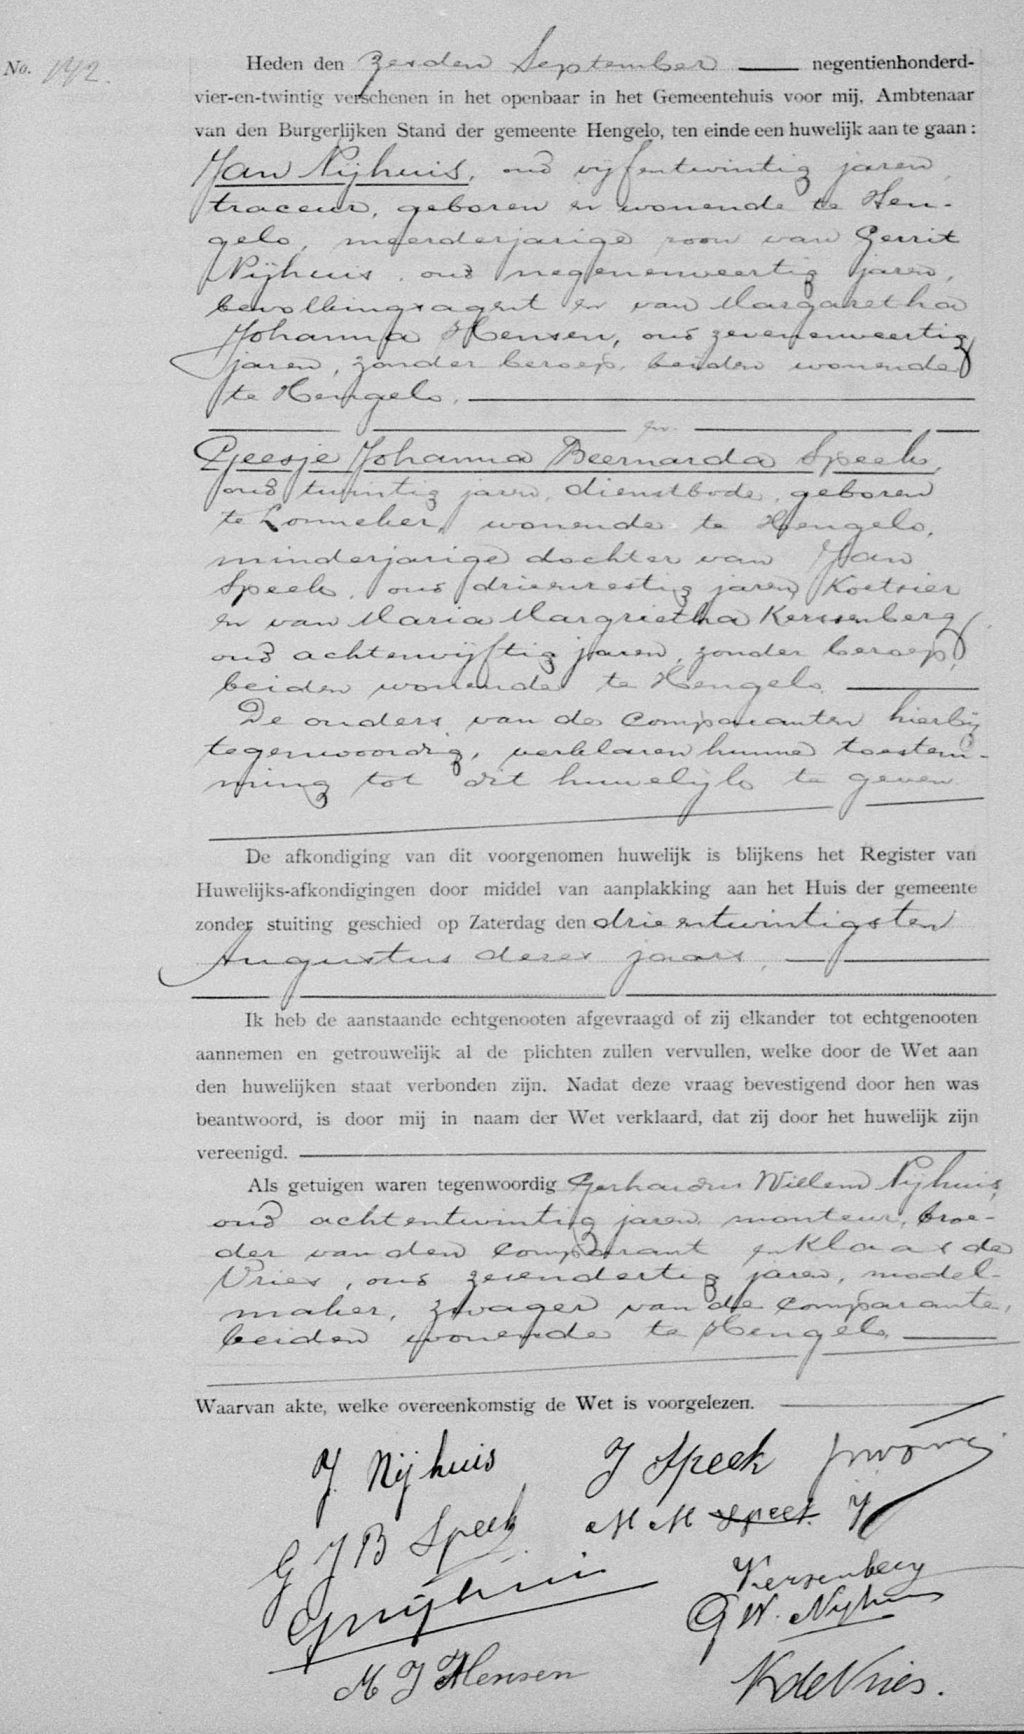 No. 142.
Heden den zesden September negentienhonderd-
vier-en-twintig verschenen in het openbaar in het Gemeentehuis voor mij, Ambtenaar
van den Burgerlijken Stand der gemeente Hengelo, ten einde een huwelijk aan te gaan:
Jan Nijhuis, oud vijfentwintig jaren,
traceur, geboren en wonende te Hen-
gelo, meerderjarige zoon van Gerrit
Nijhuis, oud negenenveertig jaren,
bevolkingsagent en van Margaretha
Johanna Hensen, oud zevenenveertig
jaren, zonder beroep, beiden wonende
te Hengelo.
en
Geesje Johanna Beernarda Speek,
oud twintig jaren, dienstbode, geboren
te Lonneker, wonende te Hengelo,
minderjarige dochter van Jan
Speek, oud drieenzestig jaren, Koetsier
en van Maria Margrietha Kerssenberg,
oud achtenvijftig jaren, zonder beroep,
beiden wonende te Hengelo.
De ouders van de comparanten hierbij
tegenwoordig, verklaren hunne toestem-
ming tot dit huwelijk te geven.
De afkondiging van dit voorgenomen huwelijk is blijkens het Register van
Huwelijks-afkondigingen door middel van aanplakking aan het Huis der gemeente
zonder stuiting geschied op Zaterdag den drieentwintigsten
Augustus dezes jaars.
Ik heb de aanstaande echtgenooten afgevraagd of zij elkander tot echtgenooten
aannemen en getrouwelijk al de plichten zullen vervullen, welke door de Wet aan
den huwelijken staat verbonden zijn. Nadat deze vraag bevestigend door hen was
beantwoord, is door mij in naam der Wet verklaard, dat zij door het huwelijk zijn
vereenigd.
Als getuigen waren tegenwoordig Gerhardus Willem Nijhuis,
oud achtentwintig jaren, monteur, broe-
der van den comparant en Klaas de
Vries, oud zevendertig jaren, model-
maker, zwager van de comparante,
beiden wonende te Hengelo.
Waarvan akte, welke overeenkomstig de Wet is voorgelezen.
J. Nijhuis J Speek
G J B Speek M M Speek
GNijhuis Kerssenberg
G W. Nijhuis
M J Hensen K de Vries.